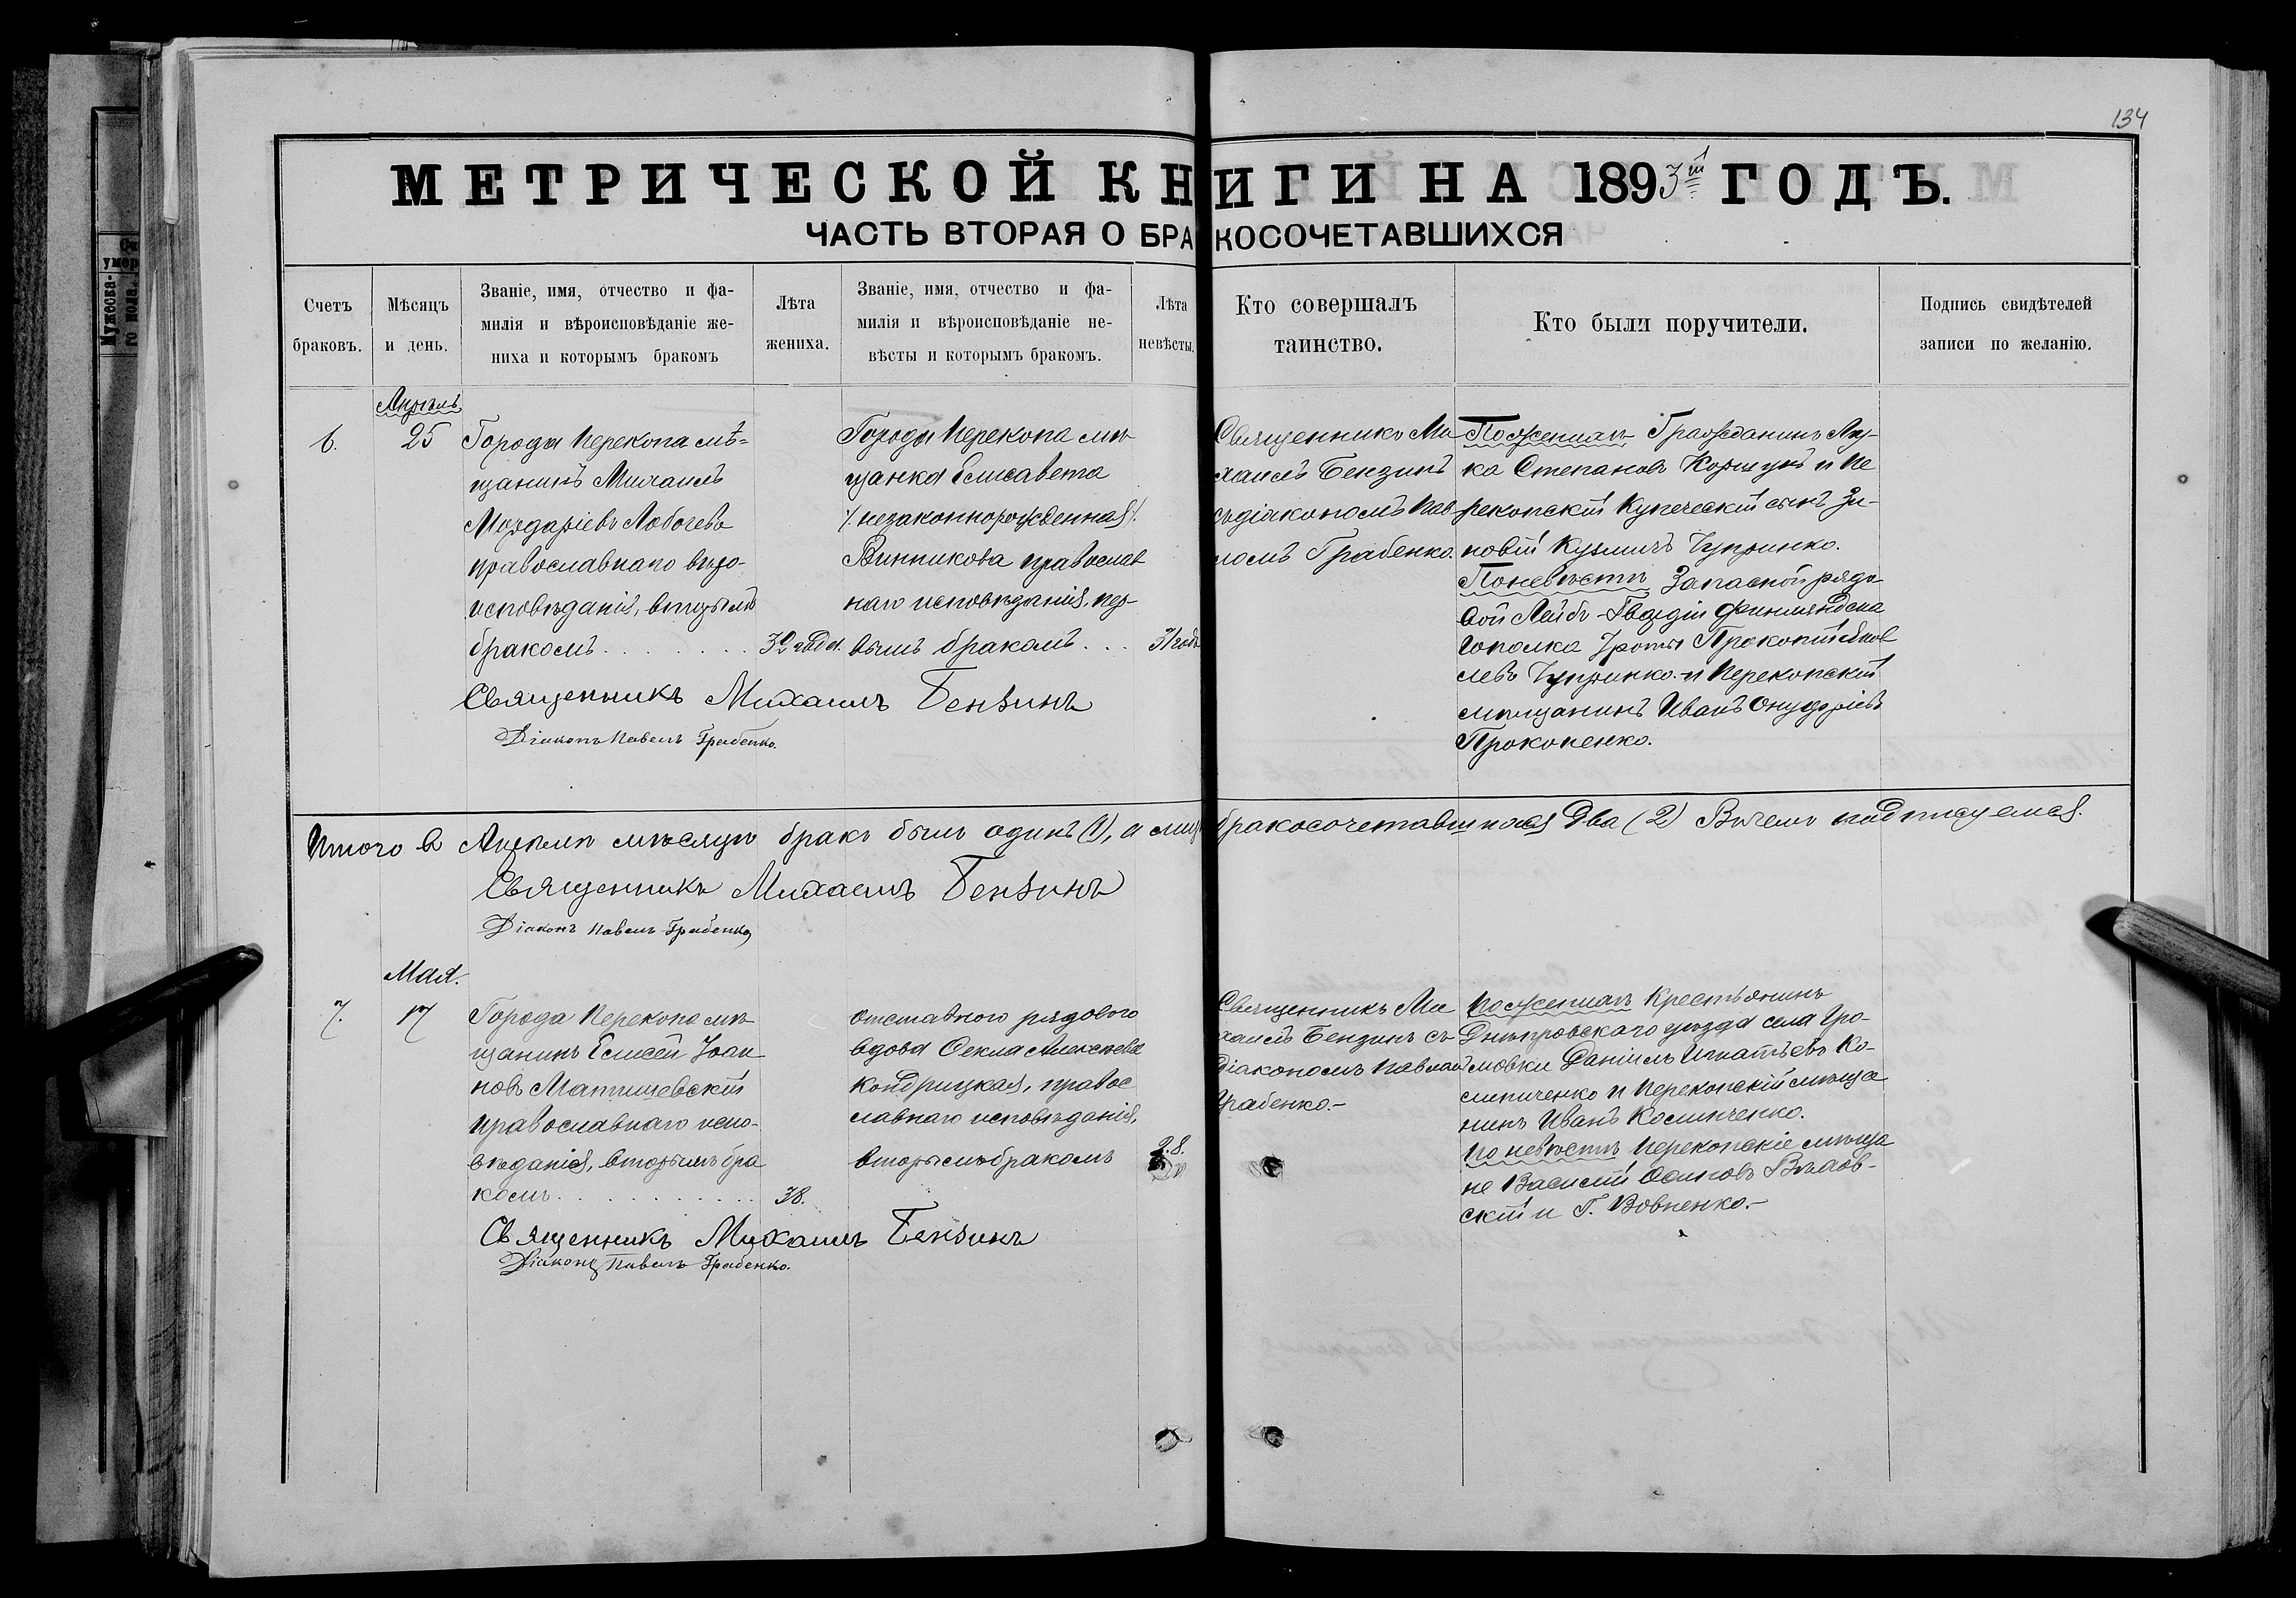 134
МЕТРИЧЕСКОЙ КНИГИ НА 1893й ГОДЪ.
ЧАСТЬ ВТОРАЯ О БРАКОСОЧЕТАВШИХСЯ
Счетъ
браковъ.
Мѣсяцъ
и день.
Званіе, имя, отчество и фа-
милія и вѣроисповѣданіе же-
ниха и которымъ бракомъ
Лѣта
жениха.
Званіе, имя, отчество и фа-
милія и вѣроисповѣданіе не-
вѣсты и которымъ бракомъ.
Лѣта
невѣсты.
Кто совершалъ
таинство.
Кто были поручители.
Подпись свидѣтелей
записи по желанію.
6.
Апрѣль
25
Города Перекопа мѣ-
щанинъ Михаилъ
Мордаріевъ Лобачевъ
православнаго вѣро-
исповѣданія, вторымъ
бракомъ
32 года.
Города Перекопа мѣ
щанка Елисавета
/. незаконнорожденная /.
Винникова православ
наго исповѣданія, пер-
вымъ бракомъ . . .
31 годъ
Священникъ Ми
хаилъ Бензинъ
съ діакономъ Пав
ломъ Грабенко.
По женихѣ Гражданинъ Лу-
ка Степановъ Коршунъ и Пе
рекопскій купеческій сынъ Зи-
новій Кузмичъ Чупринко.
По невѣстѣ Запасной рядо
вой Лейбъ-Гвардіи Финляндска
го полка роты Прокопій
Чупринко и Перекопскій
мѣщанинъ Иванъ Онуфріевъ
Прокопенко.
Священникъ Михаилъ Бензинъ
Діаконъ Павелъ Грабенко.
Итого въ Апрѣлѣ мѣсяцѣ бракъ былъ одинъ (1), а бракосочетавшихся два (2) В чемъ подписуемся.
Священникъ Михаилъ Бензинъ
Діаконъ Павелъ Грабенко
7.
Мая.
17
Города Перекопа мѣ
щанинъ Елисей Іоан
новъ Матишевскій
православнаго испо-
вѣданія, вторымъ бра
комъ
38.
отставного рядового
вдова Ѳекла Алексѣева
Кондрицкая, правос
славнаго исповѣданія,
вторымъ бракомъ
28.
Священникъ Ми
хаилъ Бензинъ съ
діакономъ Павломъ
Грабенко.-
По женихѣ Крестьянинъ
Днѣпровскаго уѣзда села Гро-
мовки Даніилъ Игнатьевъ Ко-
линиченко и Перекопскій мѣща
нинъ Иванъ
По невѣстѣ Перекопскіе мѣща
не Василій Осиповъ
скій и Г. Вовненко.-
Священникъ Михаилъ Бензинъ
Діаконъ Павелъ Грабенко.